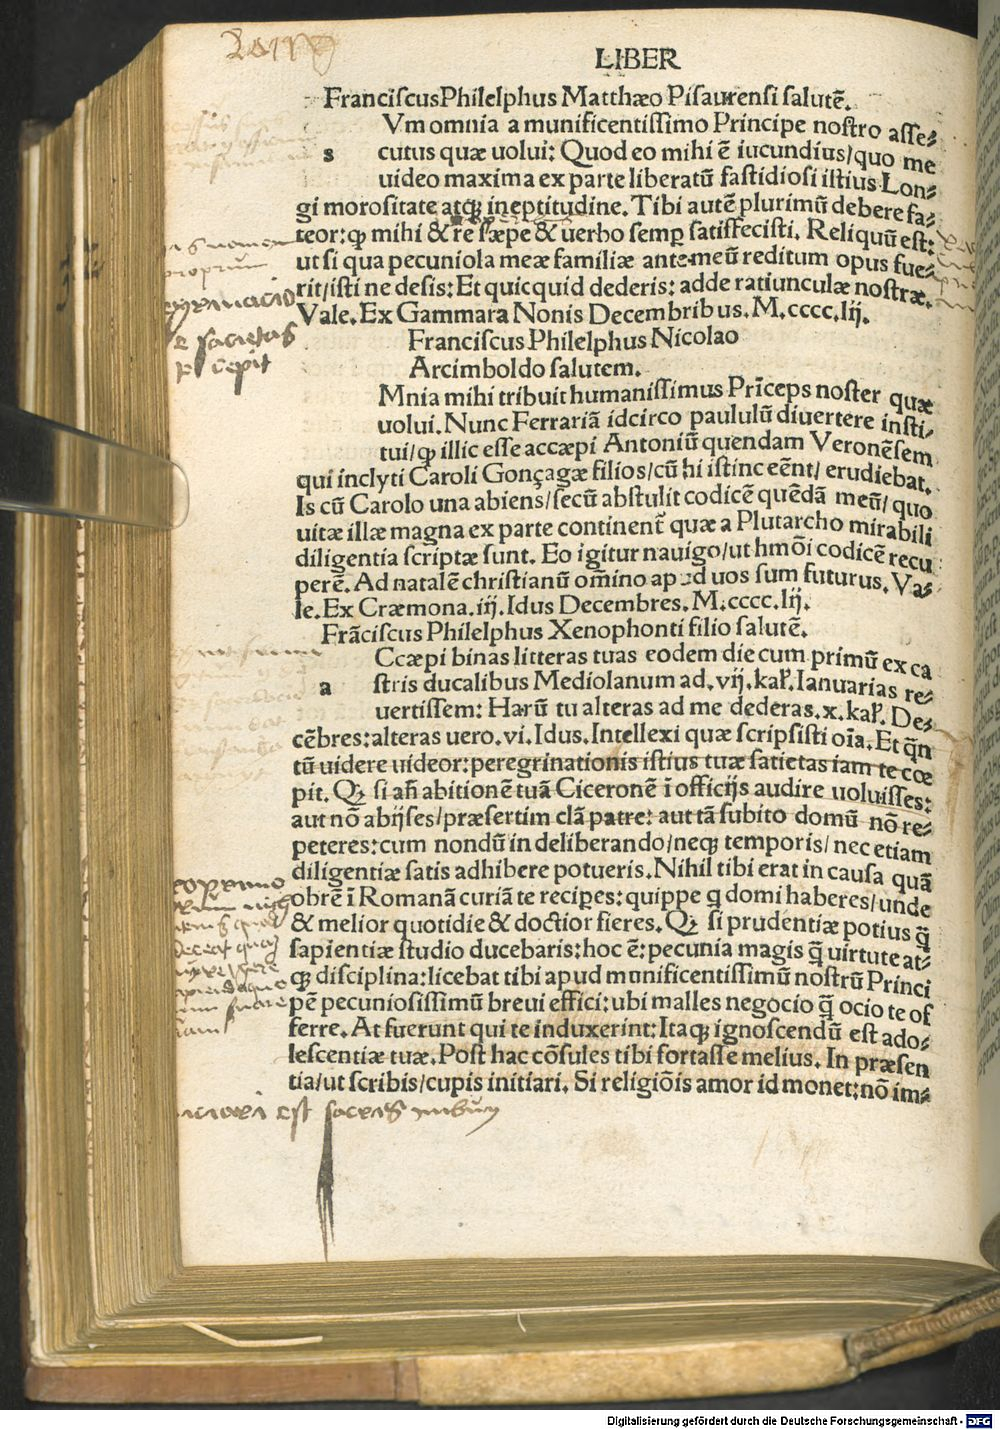 LIBER
Franciſcus Philelphus Matthæo Piſaurenſi ſalutē.
Vm omnia a munificentiſſimo Principe noſtro aſſe⸗
s cutus quæ uolui: Quod eo mihi ē iucundius/quo me
uideo maxima ex parte liberatū faſtidioſi iſtius Lon⸗
gi moroſitate atqꝫ ineptitudine. Tibi autē plurimū debere fa⸗
teor: ꝙ mihi & re ſæpe & uerbo ſemꝑ ſatiſfeciſti. Reliquū eſt:
ut ſi qua pecuniola meæ familiæ ante meū reditum opus fue⸗
rit/iſti ne deſis: Et quicquid dederis: adde ratiunculæ noſtræ.
Vale. Ex Gammara Nonis Decembribus. M.cccc.lij.
Franciſcus Philelphus Nicolao
Arcimboldo ſalutem.
Mnia mihi tribuit humaniſſimus Prīceps noſter quæ
uolui. Nunc Ferrariā idcirco paululū diuertere inſti/
tui/ꝙ illic eſſe accæpi Antoniū quendam Veronēſem
qui inclyti Caroli Gonçagæ filios/cū hi iſtinc eēnt/ erudiebat.
Is cū Carolo una abiens/ſecū abſtulit codicē quēdā meū/ quo
uitæ illæ magna ex parte continent᷑ quæ a Plutarcho mirabili
diligentia ſcriptæ ſunt. Eo igitur nauigo/ut hmōi codicē recu
perē. Ad natalē chriſtianū oīno apud uos ſum futurus. Va⸗
le. Ex Cræmona. iij. Idus Decembres. M.cccc.lij.
Frāciſcus Philelphus Xenophonti filio ſalutē.
Ccæpi binas litteras tuas eodem die cum primū ex ca
a ſtris ducalibus Mediolanum ad. vij. kal. Ianuarias re⸗
uertiſſem: Harū tu alteras ad me dederas. x. kal. De⸗
cēbres: alteras uero. vi. Idus. Intellexi quæ ſcripſiſti oīa. Et q̄n
tū uidere uideor: peregrinationis iſtius tuæ ſatietas iam te cœ
pit. Qꝫ ſi añ abitionē tuā Ciceronē ī officijs audire uoluiſſes:
aut nō abijſes/præſertim clā patre: aut tā ſubito domū nō re⸗
peteres: cum nondū in deliberando/neqꝫ temporis/ nec etiam
diligentiæ ſatis adhibere potueris. Nihil tibi erat in cauſa quā
obrē ī Romanā curiā te reciꝑes: quippe q domi haberes/unde
& melior quotidie & doctior fieres. Qꝫ ſi prudentiæ potius q̄
ſapientiæ ſtudio ducebaris: hoc ē: pecunia magis q̄ uirtute at⸗
qꝫ diſciplina: licebat tibi apud munificentiſſimū noſtrū Princi
pē pecunioſiſſimū breui effici: ubi malles negocio q̄ ocio te of
ferre. At fuerunt qui te induxerint: Itaqꝫ ignoſcendū eſt ado⸗
leſcentiæ tuæ. Poſt hac cōſules tibi fortaſſe melius. In præſen
tia/ut ſcribis/cupis initiari. Si religiōis amor id monet: nō im⸗
Digitalisierung gefördert durch die Deutsche Forschungsgemeinschaft - DFG